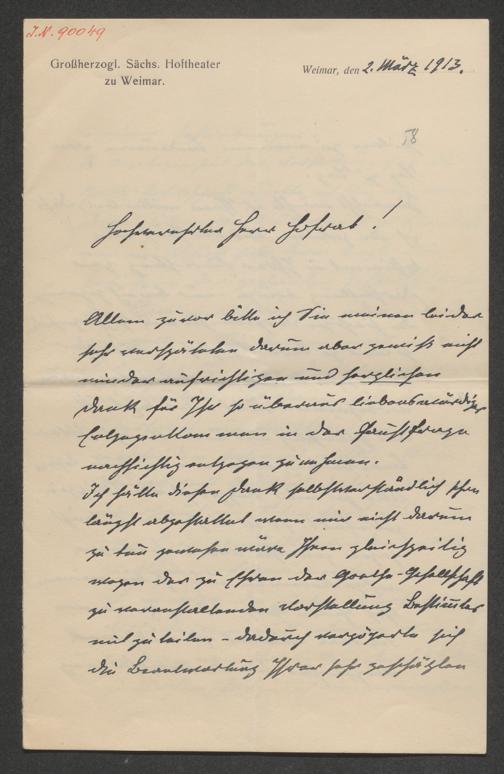 J.N. 90049
Großherzogl. Sächs. Hoftheater
zu Weimar.
Weimar, den 2. März 1913.
58
Hochverehrter Herr Hofrat!
Allem zuvor bitte ich Sie meinen leider
sehr verspäteten darum aber gewiß nicht
minder aufrichtigen und herzlichen
Dank für Ihr so überaus liebenswürdiges
Entgegenkommen in der Faustfrage
nachsichtig entgegen zu nehmen.
Ich hätte diesen Dank selbstverständlich schon
längst abgestattet wenn mir nicht darum
zu tun gewesen wäre Ihnen gleichzeitig
wegen der zu Ehren der Goethe-Gesellschaft
zu veranstaltenden Vorstellung Bestimmtes
mitzuteilen – dadurch verzögerte sich
die Beantwortung Ihrer sehr geschätzten